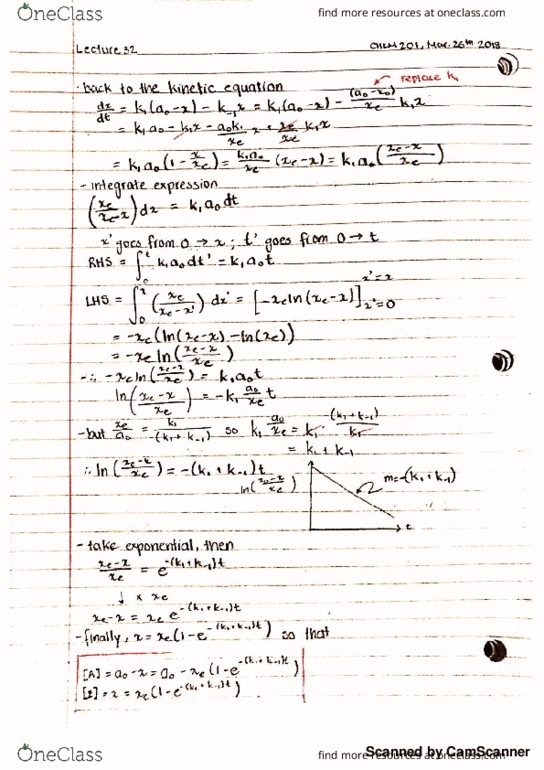 OneClass
find more resources at oneclass.com
Lecture 32
CHEM 201, Mar. 26th 2018
· back to the kinetic equation
replace k₁
dx/dt = k₁(a₀-x) - k₋₁x = k₁(a₀-x) - (a₀-x₀)/xe k₁x
= k₁a₀ - k₁x - a₀k₁/xe x + xe/xe k₁x
= k₁a₀(1 - x/xe) = k₁a₀/xe (xe-x) = k₁a₀((xe-x)/xe)
- integrate expression
(xe/(xe-x))dx = k₁a₀dt
x' goes from 0 → x ; t' goes from 0 → t
RHS = ∫₀ᵗ k₁a₀dt' = k₁a₀t
LHS = ∫₀ˣ (xe/(xe-x')) dx' = [-xe ln(xe-x)] x'=x x'=0
= -xe(ln(xe-x) - ln(xe))
= -xe ln((xe-x)/xe)
- ∴ -xe ln((xe-x)/xe) = k₁a₀t
ln((xe-x)/xe) = -k₁ a₀/xe t
- but xe/a₀ = k₁/(k₁+k₋₁) so k₁ a₀/xe = k₁ · (k₁+k₋₁)/k₁
= k₁ + k₋₁
∴ ln((xe-x)/xe) = -(k₁+k₋₁)t
m=-(k₁+k₋₁)
t
- take exponential, then
(xe-x)/xe = e^-(k₁+k₋₁)t
↓ × xe
xe-x = xe e^-(k₁+k₋₁)t
- finally, x = xe(1-e^-(k₁+k₋₁)t) so that
[A] = a₀-x = a₀ - xe(1-e^-(k₁+k₋₁)t)
= x = xe(1-e^-(k₁+k₋₁)t)
OneClass
find more resources at oneclass.com
Scanned by CamScanner